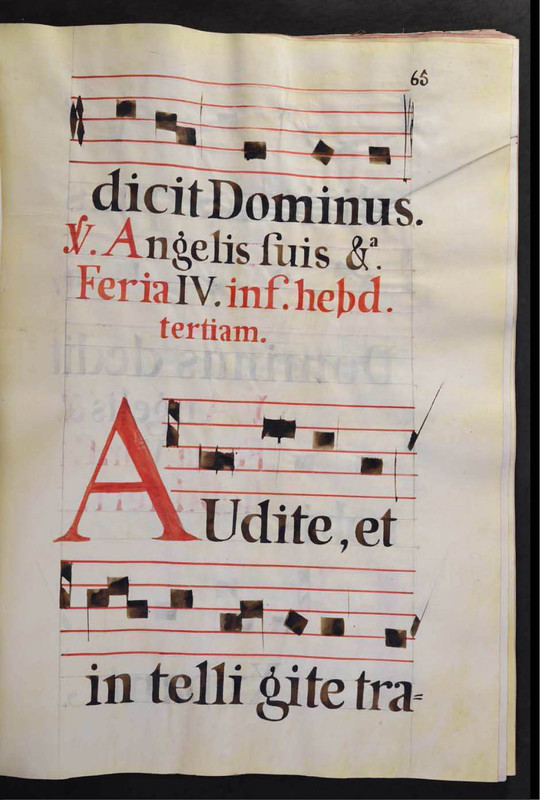 65
dicit Dominus.
℣. Angelis ſuis &ª.
Feria IV. inf. hebd.
tertiam.
AUdite, et
in telli gite tra=